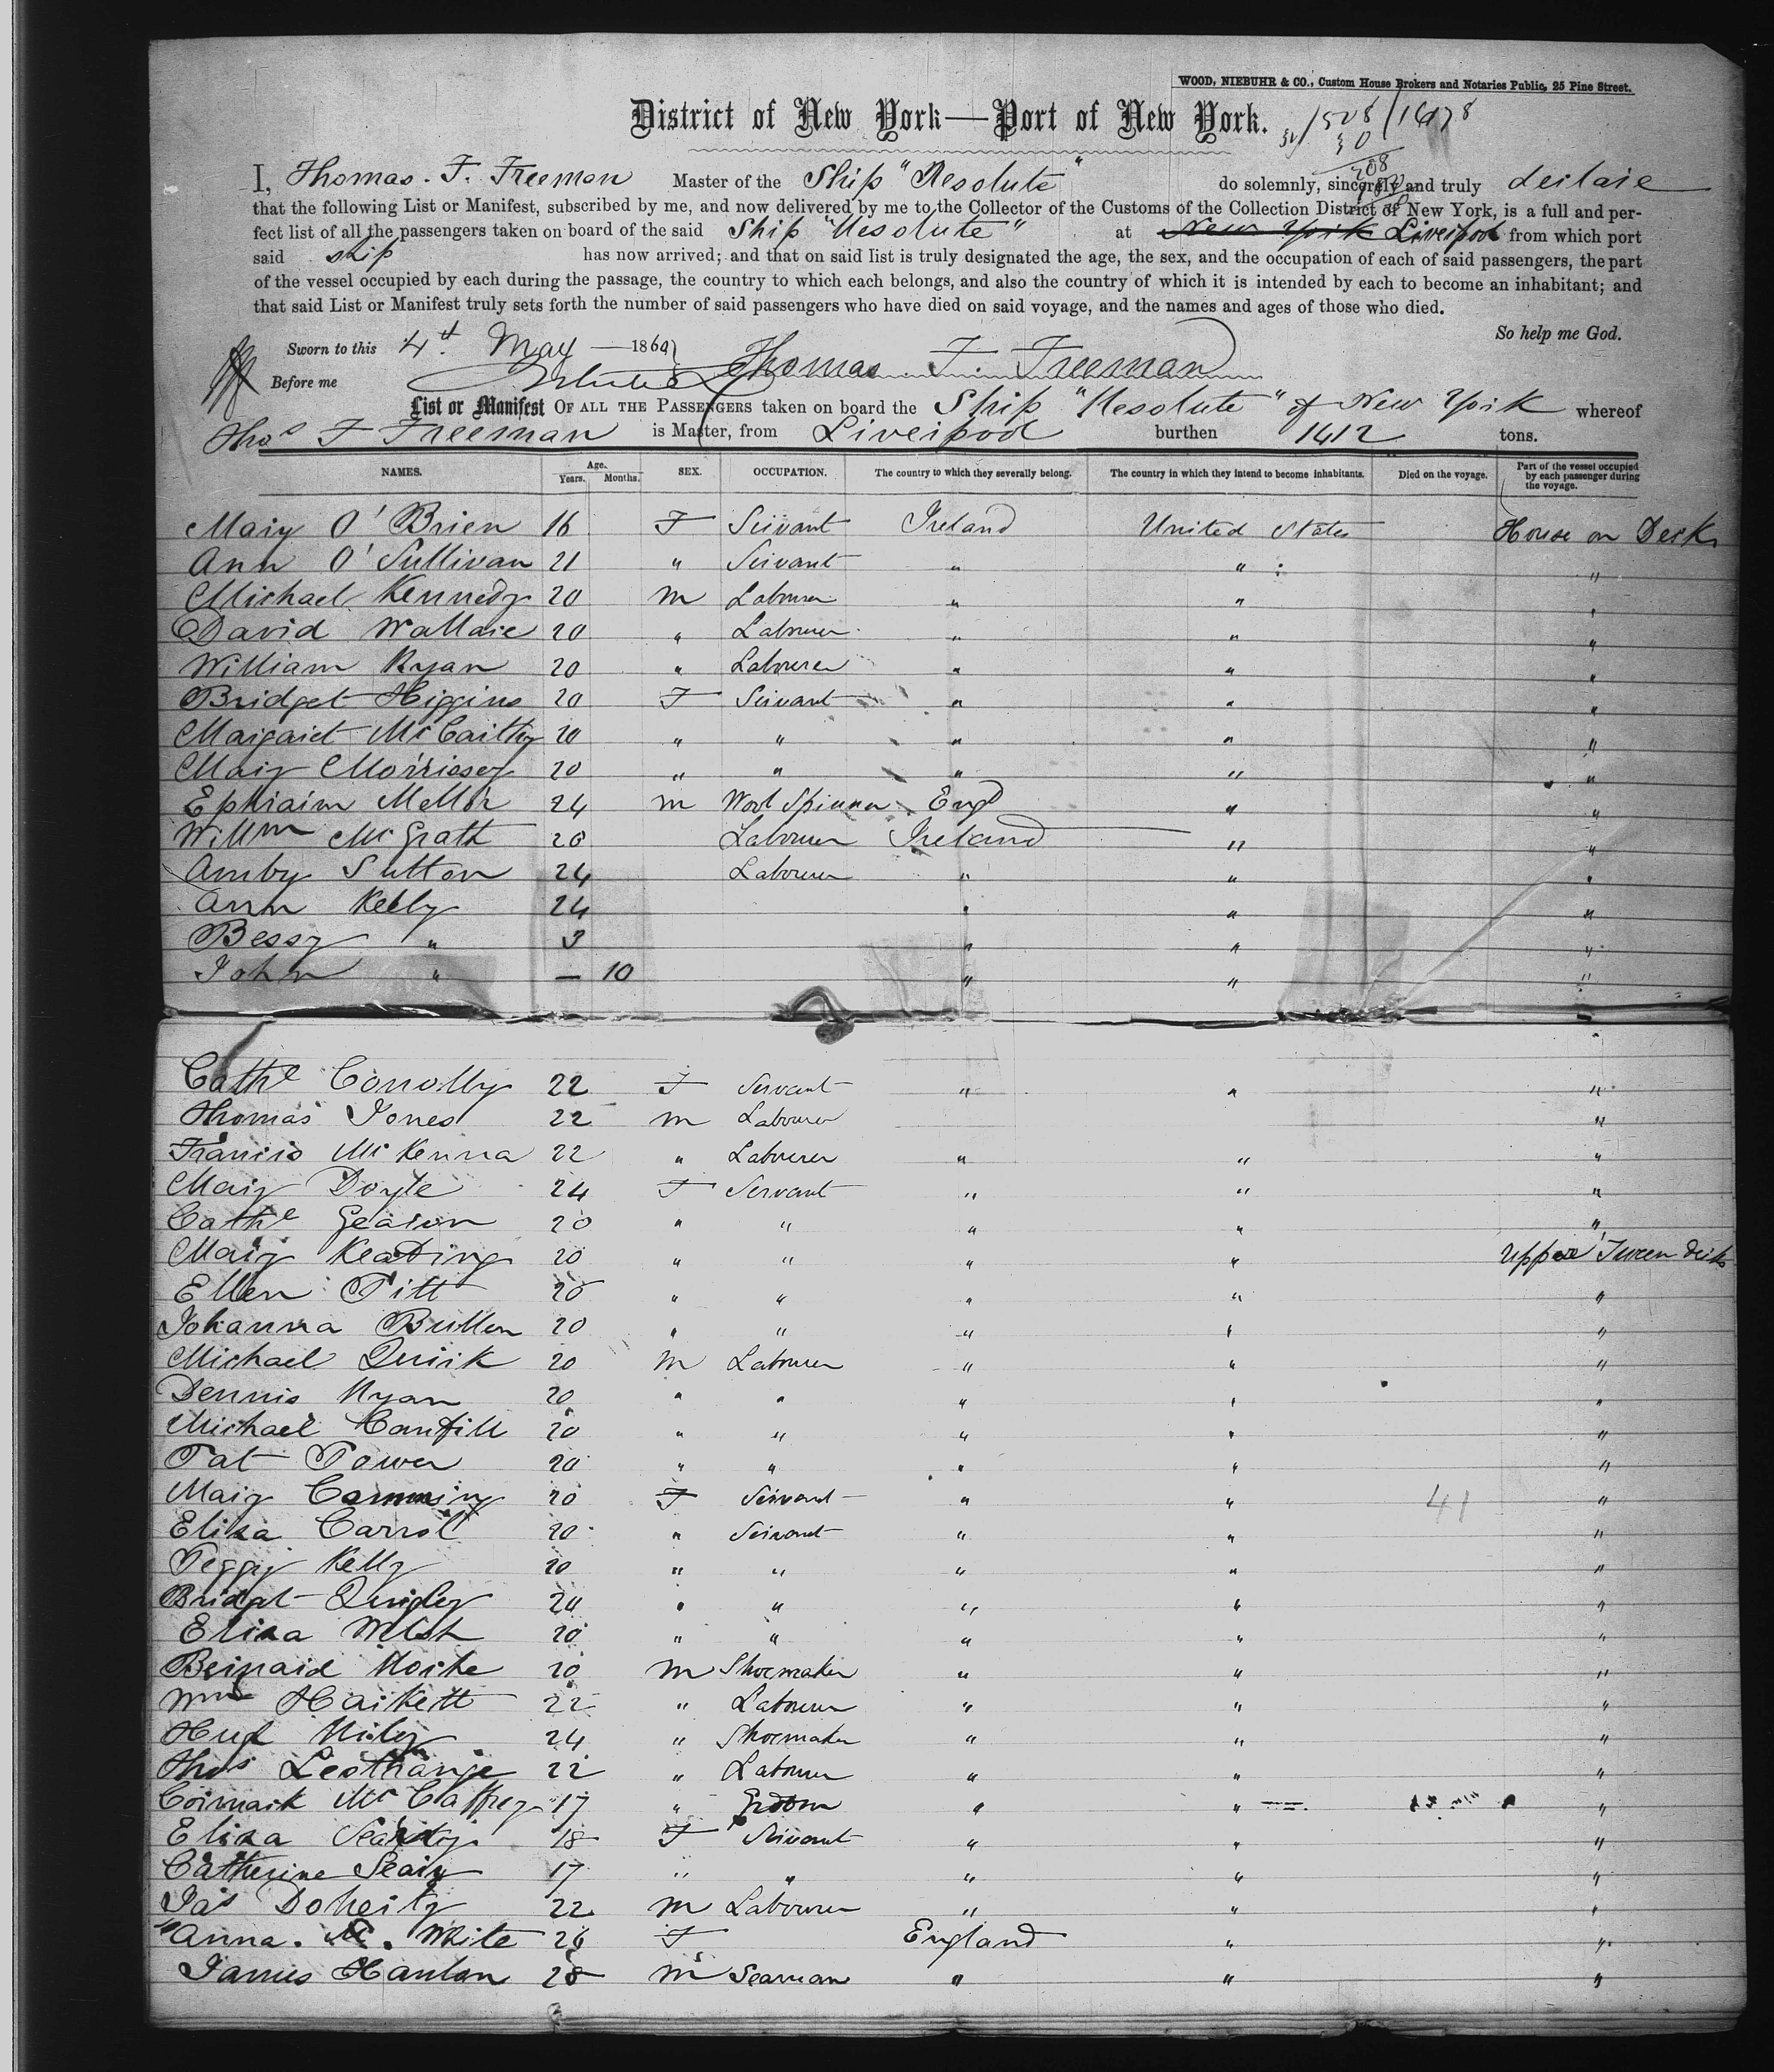 WOOD, NIEBUHR & CO., Custom House Brokers and Notaries Public, 25 Pine Street.
District of New York—Port of New York.
I, Thomas. F. Freeman Master of the Ship "Resolute" do solemnly, sincerely and truly declare
that the following List or Manifest, subscribed by me, and now delivered by me to the Collector of the Customs of the Collection District of New York, is a full and per-
fect list of all the passengers taken on board of the said Ship "Resolute" at New York Liverpool from which port
said ship has now arrived; and that on said list is truly designated the age, the sex, and the occupation of each of said passengers, the part
of the vessel occupied by each during the passage, the country to which each belongs, and also the country of which it is intended by each to become an inhabitant; and
that said List or Manifest truly sets forth the number of said passengers who have died on said voyage, and the names and ages of those who died.
So help me God.
Sworn to this 4th May 1869
Thomas. F. Freeman
Before me
List or Manifest OF ALL THE PASSENGERS taken on board the Ship "Resolute" of New York whereof
Thos F Freeman is Master, from Liverpool burthen 1412 tons.
NAMES. Age. Years. Months. SEX. OCCUPATION. The country to which they severally belong. The country in which they intend to become inhabitants. Died on the voyage. Part of the vessel occupied by each passenger during the voyage.
Mary O'Brien 16 F Servant Ireland United States House on Deck
Ann O'Sullivan 21 " Servant " " "
Michael Kennedy 20 M Labourer " " "
David Wallace 20 " Labourer " " "
William Ryan 20 " Labourer " " "
Bridget Higgins 20 F Servant " " "
Margaret McCarthy 20 " " " " "
Mary Morrissey 20 " " " " "
Ephraim Mellor 24 M Wool Spinner Engd " "
Willm McGrath 20 Labourer Ireland " "
Amby Sutton 24 Labourer " " "
Ann Kelly 24 " " "
Bessy " 3 " " "
John " — 10 " " "
Cathe Conolly 22 F Servant " " "
Thomas Jones 22 M Labourer "
Francis McKenna 22 " Labourer " " "
Mary Doyle 24 F Servant " " "
Cathe Gearon 20 " " " " "
Mary Keating 20 " " " " Upper Tween Decks
Ellen Pitt 20 " " " " "
Johanna Bullen 20 " " " " "
Michael Quirk 20 M Labourer " " "
Dennis Ryan 20 " " " " "
Michael 20 " " " " "
Pat Power 20 " " " " "
Mary 20 F Servant " " 41 "
Eliza Carrol 20 " Servant " " "
Peggy Kelly 20 " " " " "
Bridget Quigley 20 " " " " "
Eliza Welsh 20 " " " " "
Bernard 20 M Shoemaker " " "
Wm Hackett 22 " Labourer " " "
24 " Shoemaker " " "
Thos Lestrange 22 " Labourer " " "
Cormack McCaffrey 17 " Groom " " "
Eliza 18 F Servant " " "
Catherine 17 " " " " "
Jas Doherty 22 M Labourer " " "
Anna. White 26 F England " "
James Hanlon 28 M Seaman " " "